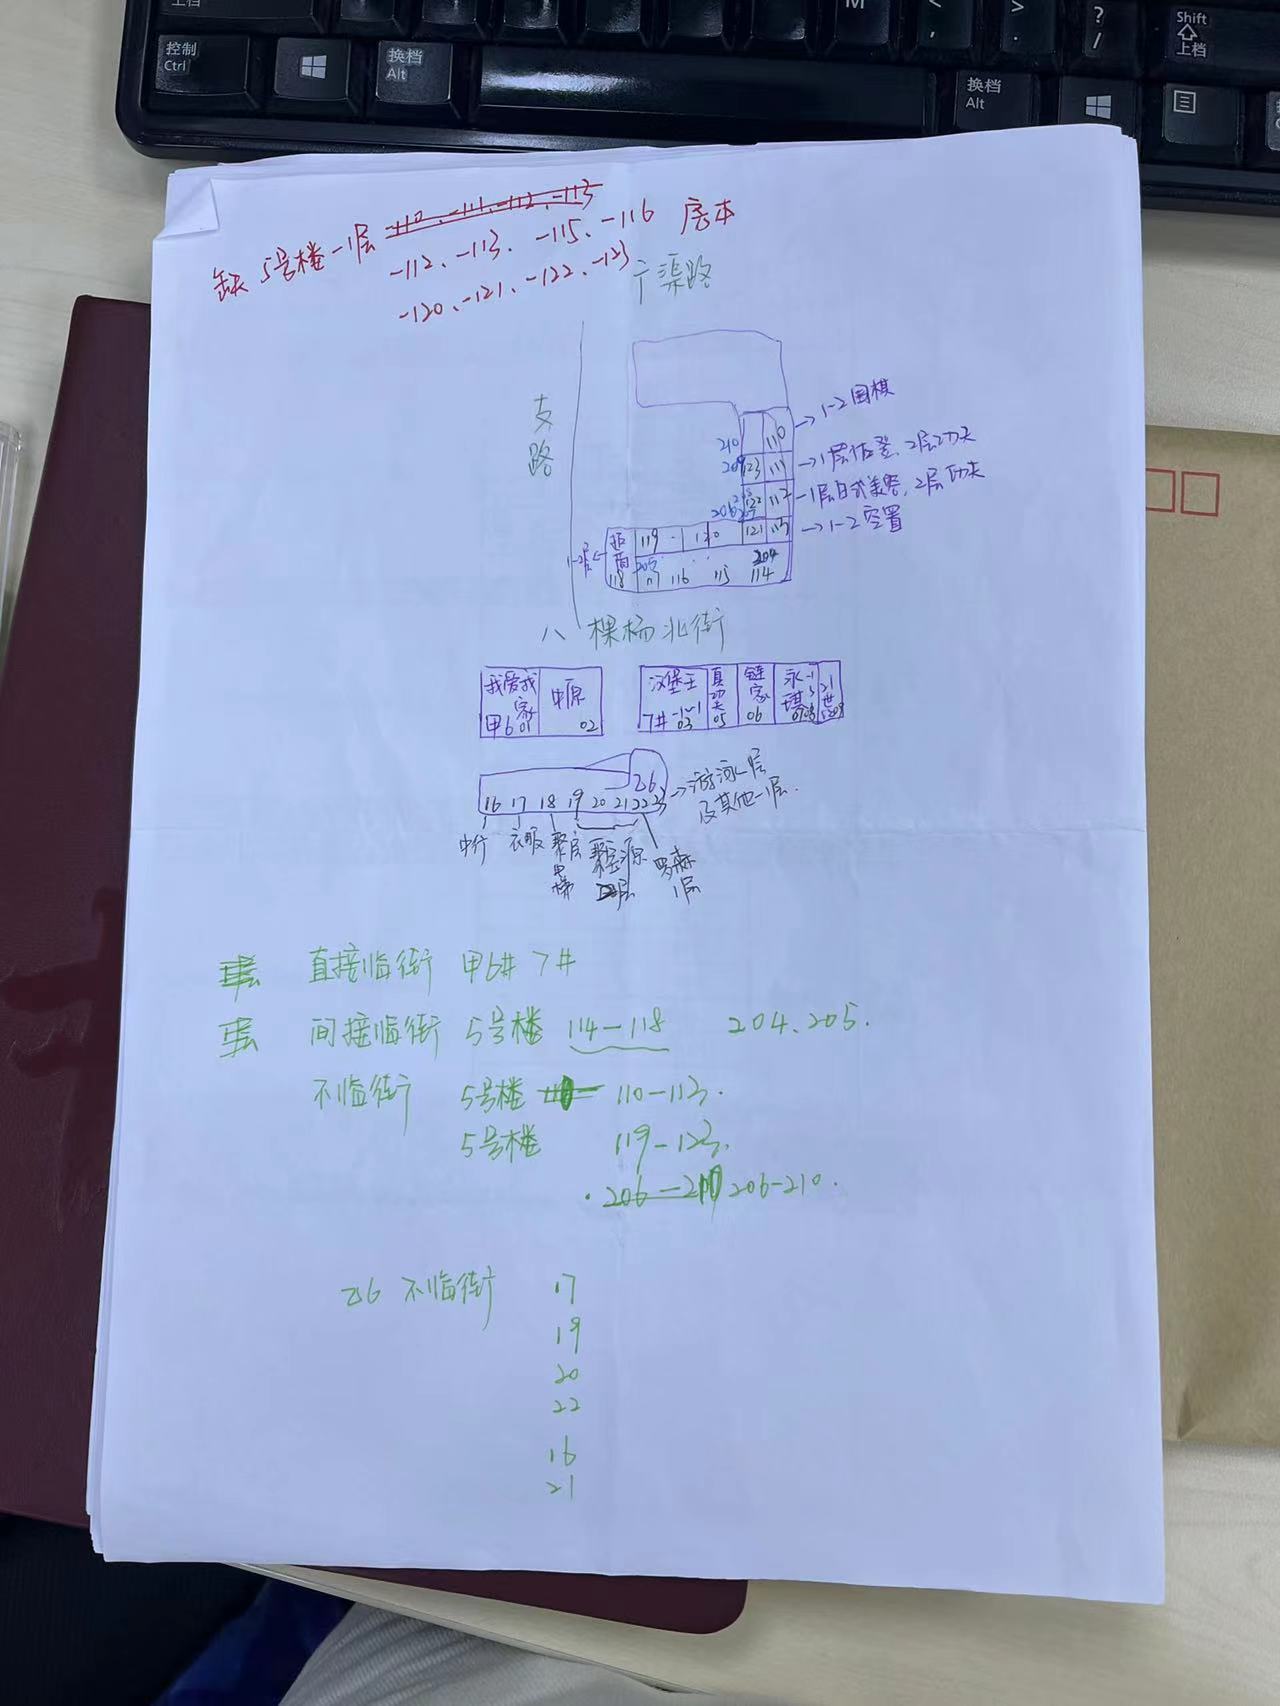 控制
Ctrl
换档
Alt
M
<
,
>
.
?
/
Shift
上档
换档
Alt
缺 5号楼-1层 -110、-111、-112、-113
-112、-113、-115、-116 房本
-120、-121、-122、-123
广渠路
支路
210 110 →1-2围棋
209 123 111
122 112 -1层日式美容,2层功夫
206 207
119 120 121 113 →1-2空置
1-2层←
205 204
118 117 116 115 114
八棵杨北街
我爱我家 中原 汉堡王 真功夫 链家 永琪 21世
甲6 01 02 7# -1~1 03 05 06
乙6
16 17 18 19 20 21 22 23 →游泳-1层
及其他-1层.
中行 衣服 罗森
1层
直接临街 甲6# 7#
间接临街 5号楼 114-118 204.205.
不临街 5号楼 110-113.
5号楼 119-123.
206-210 206-210.
乙6 不临街 17
19
20
22
16
21